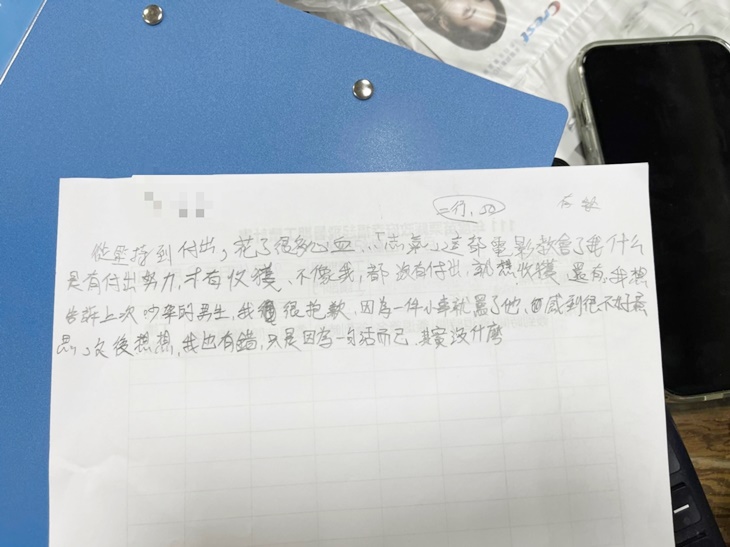 Crest
二行、50
從堅持到付出，花了很多心血...「志氣」這部電影教會了我什么
是有付出努力,才有收獲、不像我,都沒有付出,就想收獲 還有,我想
告訴上次吵架的男生,我很抱歉,因為一件小事就罵了他,感到很不好
是,文後想想,我也有錯,只是因為一句話而已,其實沒什麼